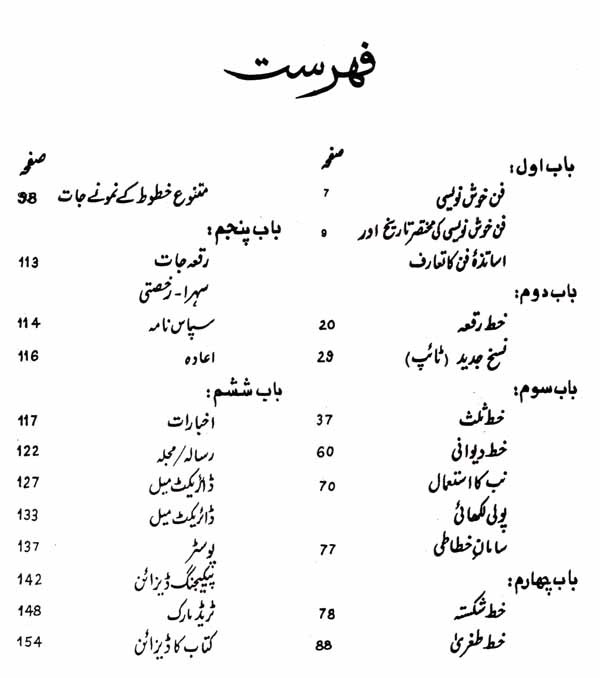 فہرست
صفحہ
باب اول:
فن خوش نویسی 7
فن خوش نویسی کی مختصر تاریخ اور 9
اساتذۂ فن کا تعارف
باب دوم:
خط رقعہ 20
نسخ جدید (ٹائپ) 29
باب سوم:
خط ثلث 37
خط دیوانی 60
نب کا استعمال 70
پولی لکھائی
سامانِ خطاطی 77
باب چہارم:
خط شکستہ 78
خط طغریٰ 88
صفحہ
متنوع خطوط کے نمونے جات 98
باب پنجم:
رقعہ جات 113
سہرا - رخصتی
سپاس نامہ 114
اعادہ 116
باب ششم:
اخبارات 117
رسالہ/مجلہ 122
ڈائریکٹ میل 127
ڈائریکٹ میل 133
پوسٹر 137
پیکیجنگ ڈیزائن 142
ٹریڈ مارک 148
کتاب کا ڈیزائن 154